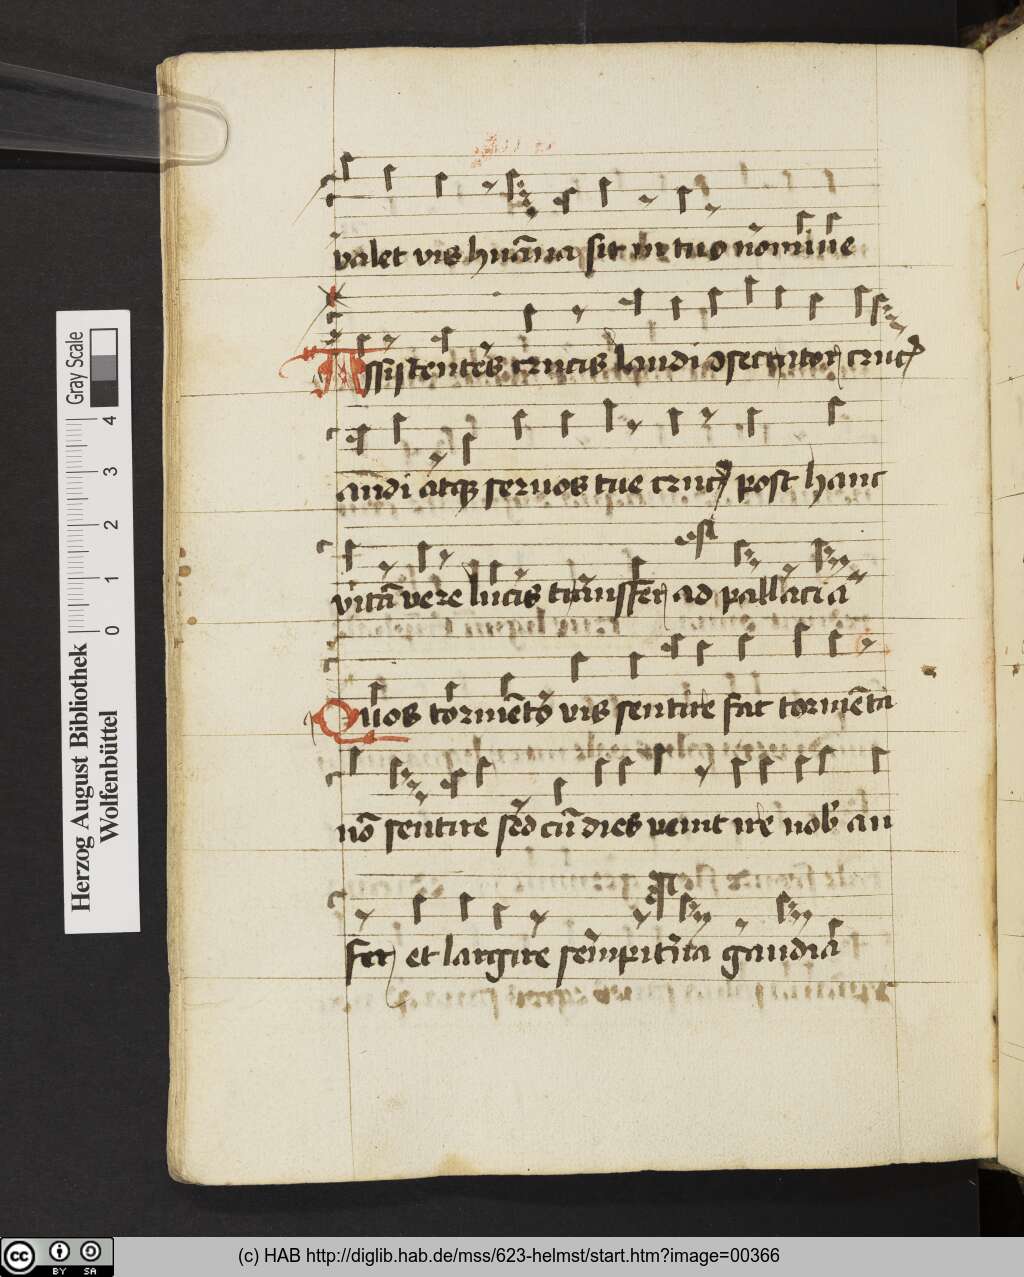 valet vis huāna sit in tuo nomine
Assistentes crucis laudi ꝯsecrator cruc
andi atqꝫ seruos tue cruc post hanc
vitā vere lucis transfer ad pallacia
Quos tormēto vis sentire fac tormēta
nō sentire sed cū dies venit ire nob an
fer et largire sempiterna gaudia
Gray Scale
4
3
2
1
0
Herzog August Bibliothek
Wolfenbüttel
cc BY SA
(c) HAB http://diglib.hab.de/mss/623-helmst/start.htm?image=00366